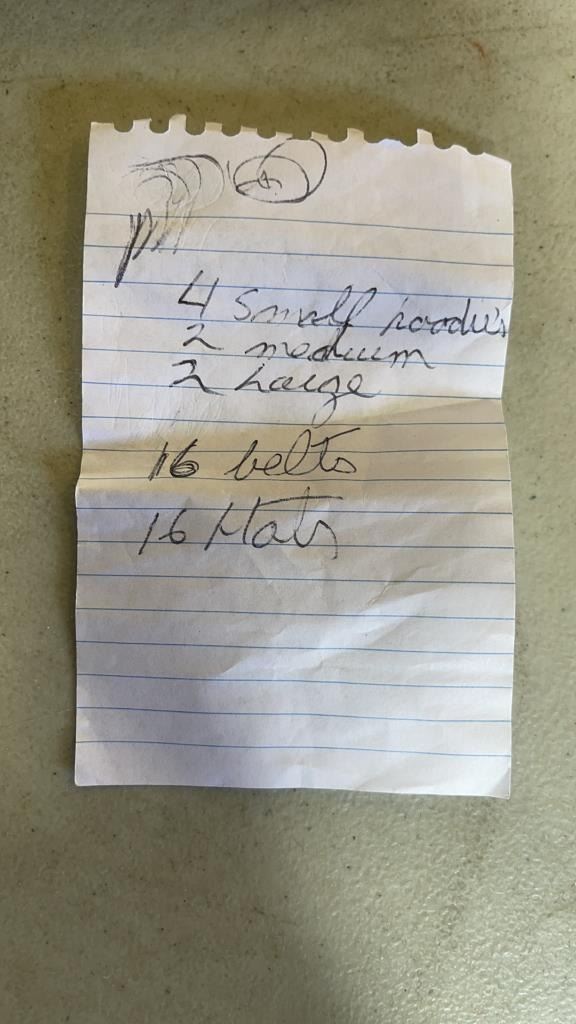 4 small hoodie's
2 medium
2 Large
16 belts
16 Hats